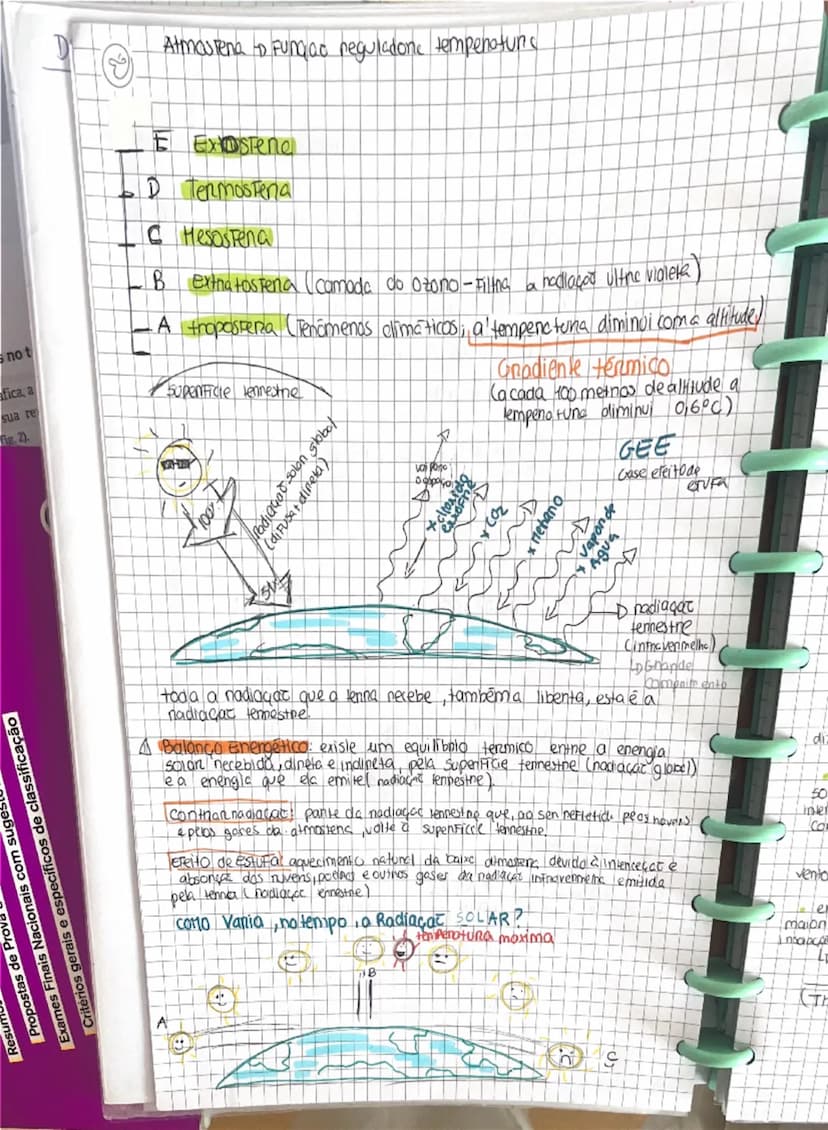 Atmosfera → Função reguladora temperatura
E Exosfera
D Termosfera
C Mesosfera
B extratosfera (camada do Ozono - Filtra a radiação ultra violeta)
A troposfera (Fenómenos climáticos; a temperatura diminui com a altitude)
Gradiente térmico
(a cada 100 metros de altitude a
temperatura diminui 0,6°C)
superfície terrestre
GEE
Gase efeito de
estufa
100%
Radiação solar global
(difusa + direta)
vai para
o espaço
x CO2
x Metano
x Vapor de
Água
→ radiação
terrestre
(infravermelha)
↳ Grande
comprimento
toda a radiação que a terra recebe, também a liberta, esta é a
radiação terrestre.
⚠ Balanço Energético: existe um equilíbrio térmico entre a energia
solar recebida, direta e indireta, pela superfície terrestre (radiação global)
e a energia que ela emite( radiação terrestre).
contrarradiação: parte da radiação terrestre que, ao ser refletida pelas nuvens
e pelos gases da atmosfera, volta à superfície terrestre.
Efeito de Estufa: aquecimento natural da baixa atmosfera devido à interceção e
absorção das nuvens, poeiras e outros gases da radiação infravermelha emitida
pela terra (radiação terrestre)
como Varia, no tempo, a Radiação SOLAR?
temperatura máxima
B
A
C
s no t
afica, a
sua re
fig. 2).
Propostas de Prova
Propostas de Provas Nacionais com sugest
Exames Finais Nacionais de classificação
Critérios gerais e específicos de classificação